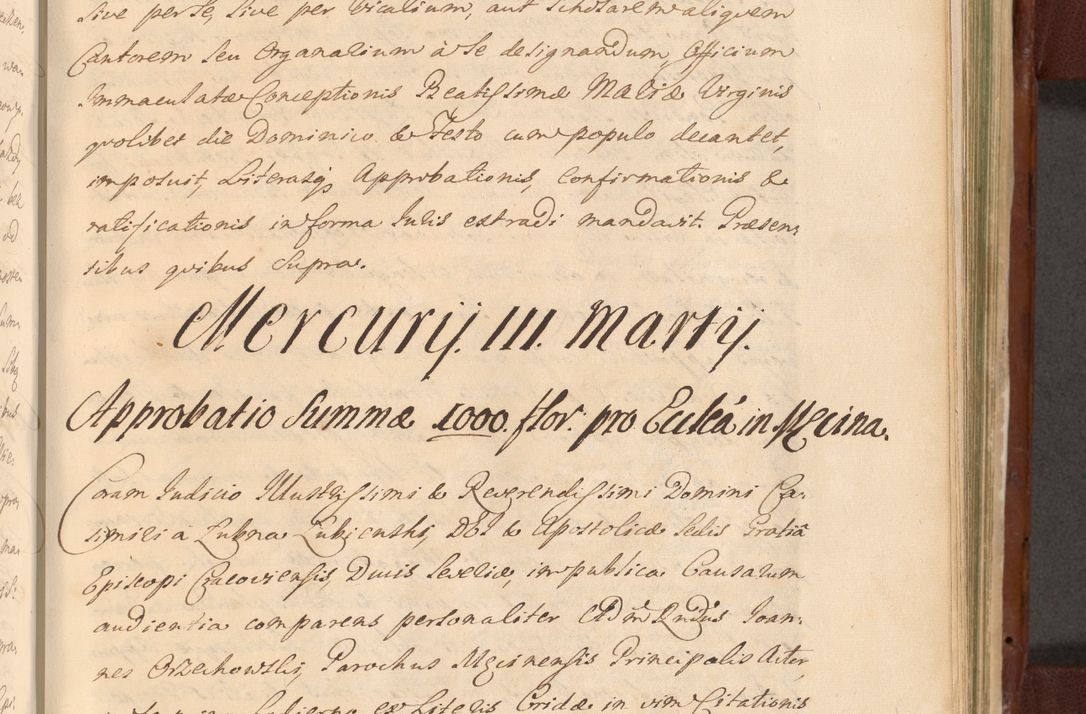 sive per se, sive per Vicarium, aut Scholarem aliquem
Cantorem seu Organarium à se designandum, Officium
Immaculatæ Conceptionis Beatissimæ Mariæ Virginis
quolibet die Dominico & Festo cum populo decantet,
imposuit, Literasq; Approbationis, Confirmationis &
ratificationis in forma Iuris extradi mandavit. Præsen-
tibus quibus supra.
Mercurij. III. Martij.
Approbatio Summæ 1000. flor: pro Eccleâ in Mecina.
Coram Iudicio Illustrissimi & Reverendissimi Domini Ca-
simiri à Lubna Lubienski, DEI & Apostolicæ Sedis Gratiâ
Episcopi Cracoviensis, Ducis Severiæ, in publica Causarum
audientia comparens personaliter Adm Rndus Ioan-
nes Orzechowski, Parochus Mecinensis Principalis Actor,
ex Literis Cridæ in vim Citationis